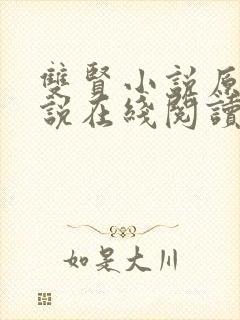 雙賢小說原
說在綫閱讀
如是大川